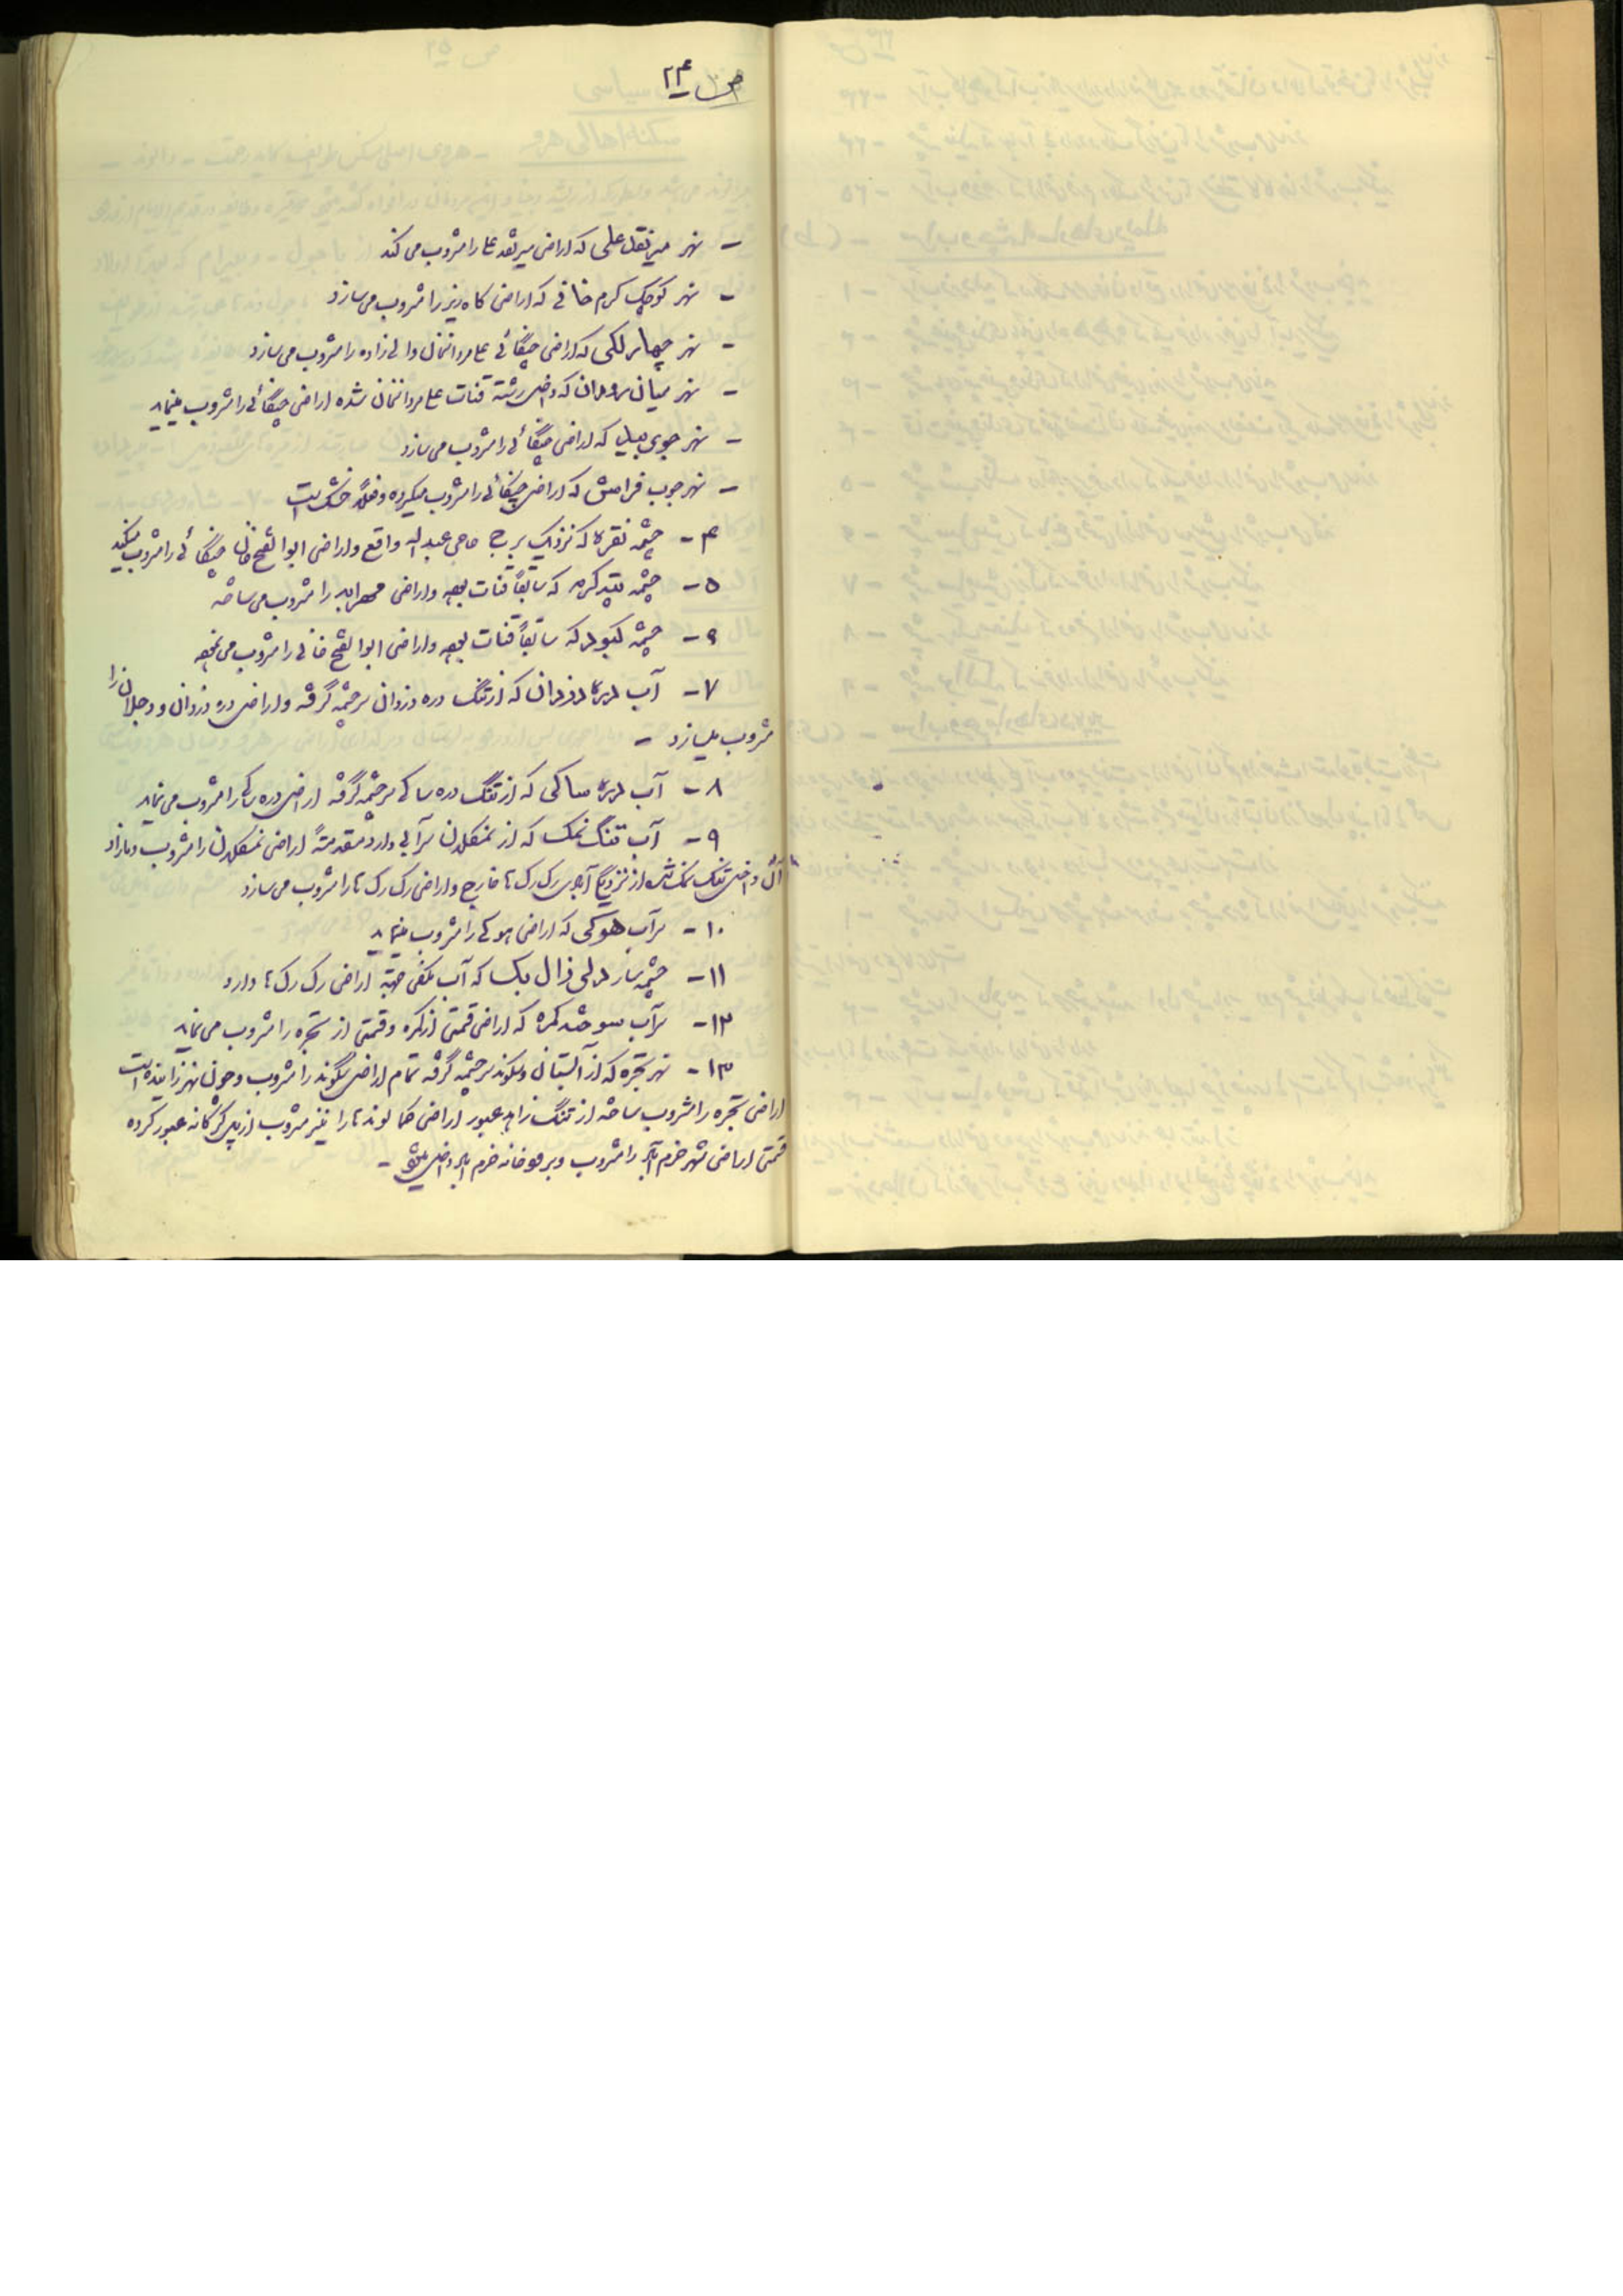 ص ۲۴
- نهر میرتقل علی که اراضی میرتقد علی را مشروب می کند
- نهر کوچک کرم خانی که اراضی کاه ریز را مشروب می سازد
- نهر چهار لکی که اراضی چنگائی علیمردانخان والی زاده را مشروب می سازد
- نهر میان رودان که داخل رشته قنات علیمردانخان شده اراضی چنگائی را مشروب مینماید
- نهر جوی که اراضی چنگائی را مشروب می سازد
- نهر جوب فراش که اراضی چنگائی را مشروب میکرده و فعلاً خشک است
۴ - چشمه نقره که نزدیک برج حاجی عبداله واقع و اراضی ابوالفتح خان چنگائی را مشروب میکند
۵ - چشمه که سابقاً قنات بوده و اراضی را مشروب می ساخته
۶ - چشمه کبود که سابقاً قنات بوده و اراضی ابوالفتح خانی را مشروب می نموده
۷ - آب دره دزدان که از تنگ دره دزدان سرچشمه گرفته و اراضی دره دزدان و دجلان را
مشروب میسازد -
۸ - آب دره ساکی که از تنگ دره ساکی سرچشمه گرفته اراضی دره ساکی را مشروب می نماید
۹ - آب تنگ نمک که از نمکلان سرآبی دارد مقدمتاً اراضی نمکلان را مشروب و مازاد
آن داخل تنگ نمک شده از نزدیک آبادی رک رک ها خارج و اراضی رک رک ها را مشروب می سازد
۱۰ - سرآب هوکی که اراضی هوکی را مشروب مینماید
۱۱ - چشمه سار زال بک که آب مکفی جهة اراضی رک رک ها دارد
۱۲ - سرآب کمره که اراضی قسمتی از کمره و قسمتی از تجره را مشروب می نماید
۱۳ - نهر تجره که از آلستان و بلوند سرچشمه گرفته تمام اراضی بگوند را مشروب و چون نهر زاینده است
اراضی تجره را مشروب ساخته از تنگ زاهد عبور اراضی کمالوندها را نیز مشروب از پل کرکانه عبور کرده
قسمتی اراضی شهر خرم آباد را مشروب و برودخانه خرم آباد داخل میشود -